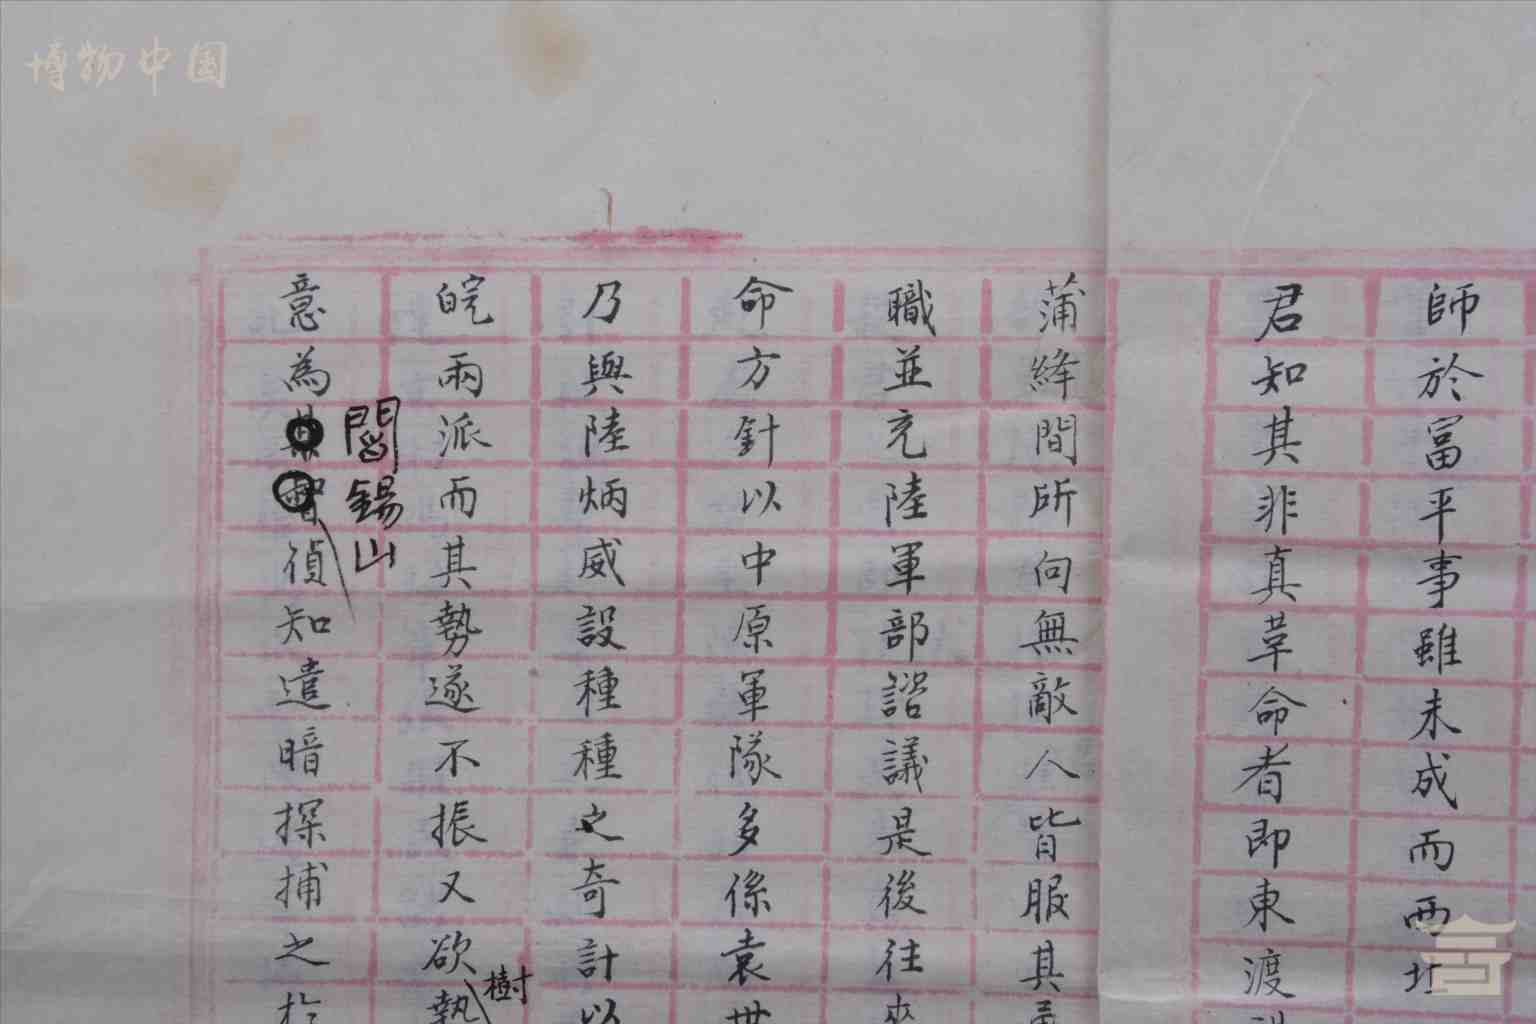 博物中国
師於富平事雖未成而西北
君知其非真革命者即東渡
蒲絳間所向無敵人皆服其
職並充陸軍部諮議是後往來
命方針以中原軍隊多係袁世
乃與陸炳威設種種之奇計以
皖兩派而其勢遂不振又欲執
樹
閻錫山
意為偵知遣暗探捕之於